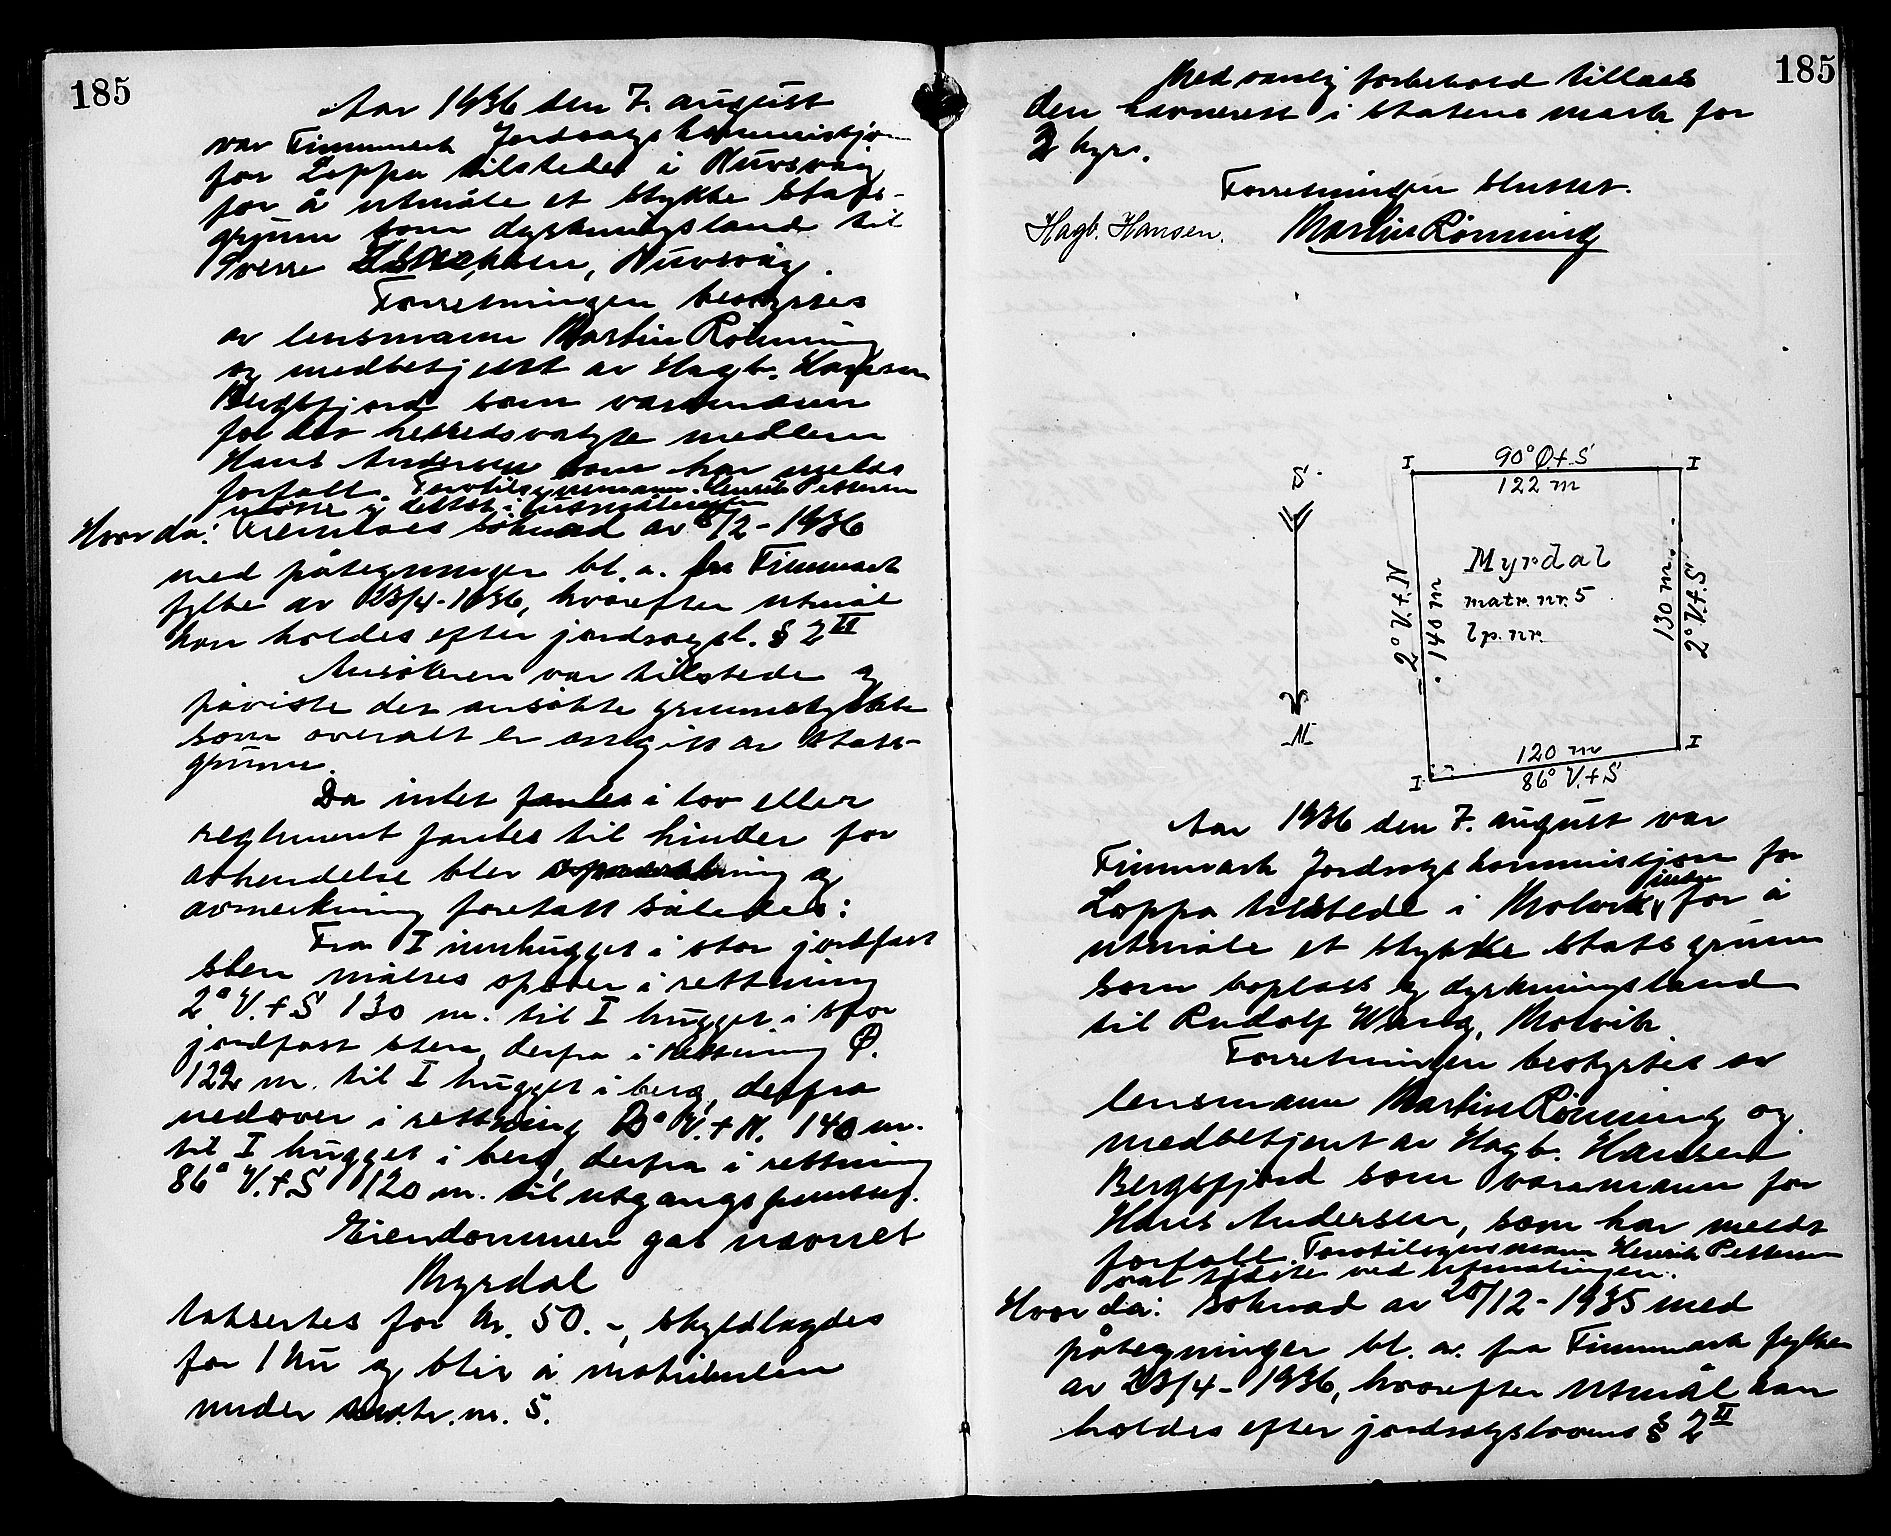 185
Aar 1936 den 7. august
var Finnmark Jordsalgskommissjon
for Loppa tilstede i Nuvsvåg
for å utmåle et stykke stats-
grunn som dyrkningsland til
Sverre Isaksen, Nuvsvåg.
Forretningen bestyrtes
av lensmann Martin Rönning
og medbetjent av Hagb. Hansen
Bergsfjord som varamann
for det herredsvalgte medlem
Hans Andersen som har meldt
forfall. Forstilsynsmann Henrik Pettersen
møtte i utmålingen
Hvorda: Fremlaes söknad av 6/2 - 1936
med påtegninger bl. a. fra Finnmark
fylke av 23/4 - 1936, hvorefter utmål
kan holdes efter jordsalgsl. § 2 II
Ansökeren var tilstede og
påviste det ansökte grunnstykke
som overalt er omgitt av stats-
grunn.
Da intet i lov eller
reglement fantes til hinder for
avhendelse blev opmåling og
avmerkning foretatt således:
Fra I innhugget i stor jordfast
sten måltes opover i rettning
2° V.t.S 130 m. til I hugget i stor
jordfast sten, derfra i rettning Ø.
122 m. til I hugget i berg, derfra
nedover i rettning 2° V.t.N. 140 m.
til I hugget i berg, derfra i rettning
86° V.t.S 120 m. til utgangspunktet.
Eiendommen gas navnet
Myrdal
taksertes for kr. 50.-, skyldlagdes
for 1 øre og blir å matrikulen
under matr. nr. 5.
185
Med vanlig forbehold tillaes
den havnerett i statens mark for
2 kyr.
Forretningen sluttet.
Hagb. Hansen. Martin Rönning
S.
N.
I 90° Ø.t.S I
122 m
2° V.t.N
140 m
Myrdal
matr. nr. 5
lp. nr.
130 m.
2° V.t.S
120 m
I
I 86° V.t.S
Aar 1936 den 7. august var
Finnmark Jordsalgskommissjon for
Loppa tilstede i Molvik for å
utmåle et stykke statsgrunn
som boplass og dyrkningsland
til Rudolf Warg, Molvik
Forretningen bestyrtes av
lensmann Martin Rönning og
medbetjent av Hagb. Hansen
Bergsfjord som varamann for
Hans Andersen, som har meldt
forfall. Forstilsynsmann Henrik Pettersen
var tilstede ved utmålingen.
Hvorda: söknad av 20/12 - 1935 med
påtegninger bl. a. fra Finnmark fylke
av 23/4 - 1936, hvorefter utmål kan
holdes efter jordsalgslovens § 2 II